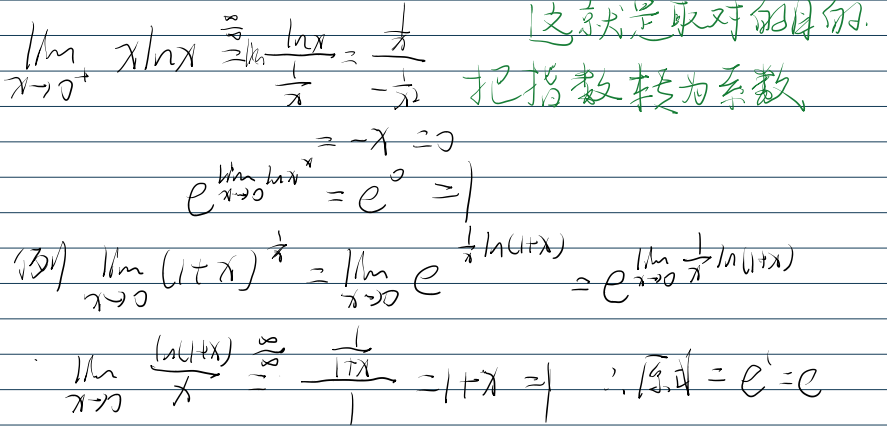 lim x→0⁺ xlnx =(∞/∞) lim lnx / (1/x) = (1/x) / (-1/x²) 这就是取对的目的.
把指数转为系数
= -x = 0
e^(lim x→0 lnx^x) = e^0 = 1
例 lim x→0 (1+x)^(1/x) = lim x→0 e^(1/x ln(1+x)) = e^(lim x→0 1/x ln(1+x))
lim x→0 ln(1+x)/x =(∞/∞) (1/(1+x)) / 1 = 1+x = 1 ∴原式 = e^1 = e